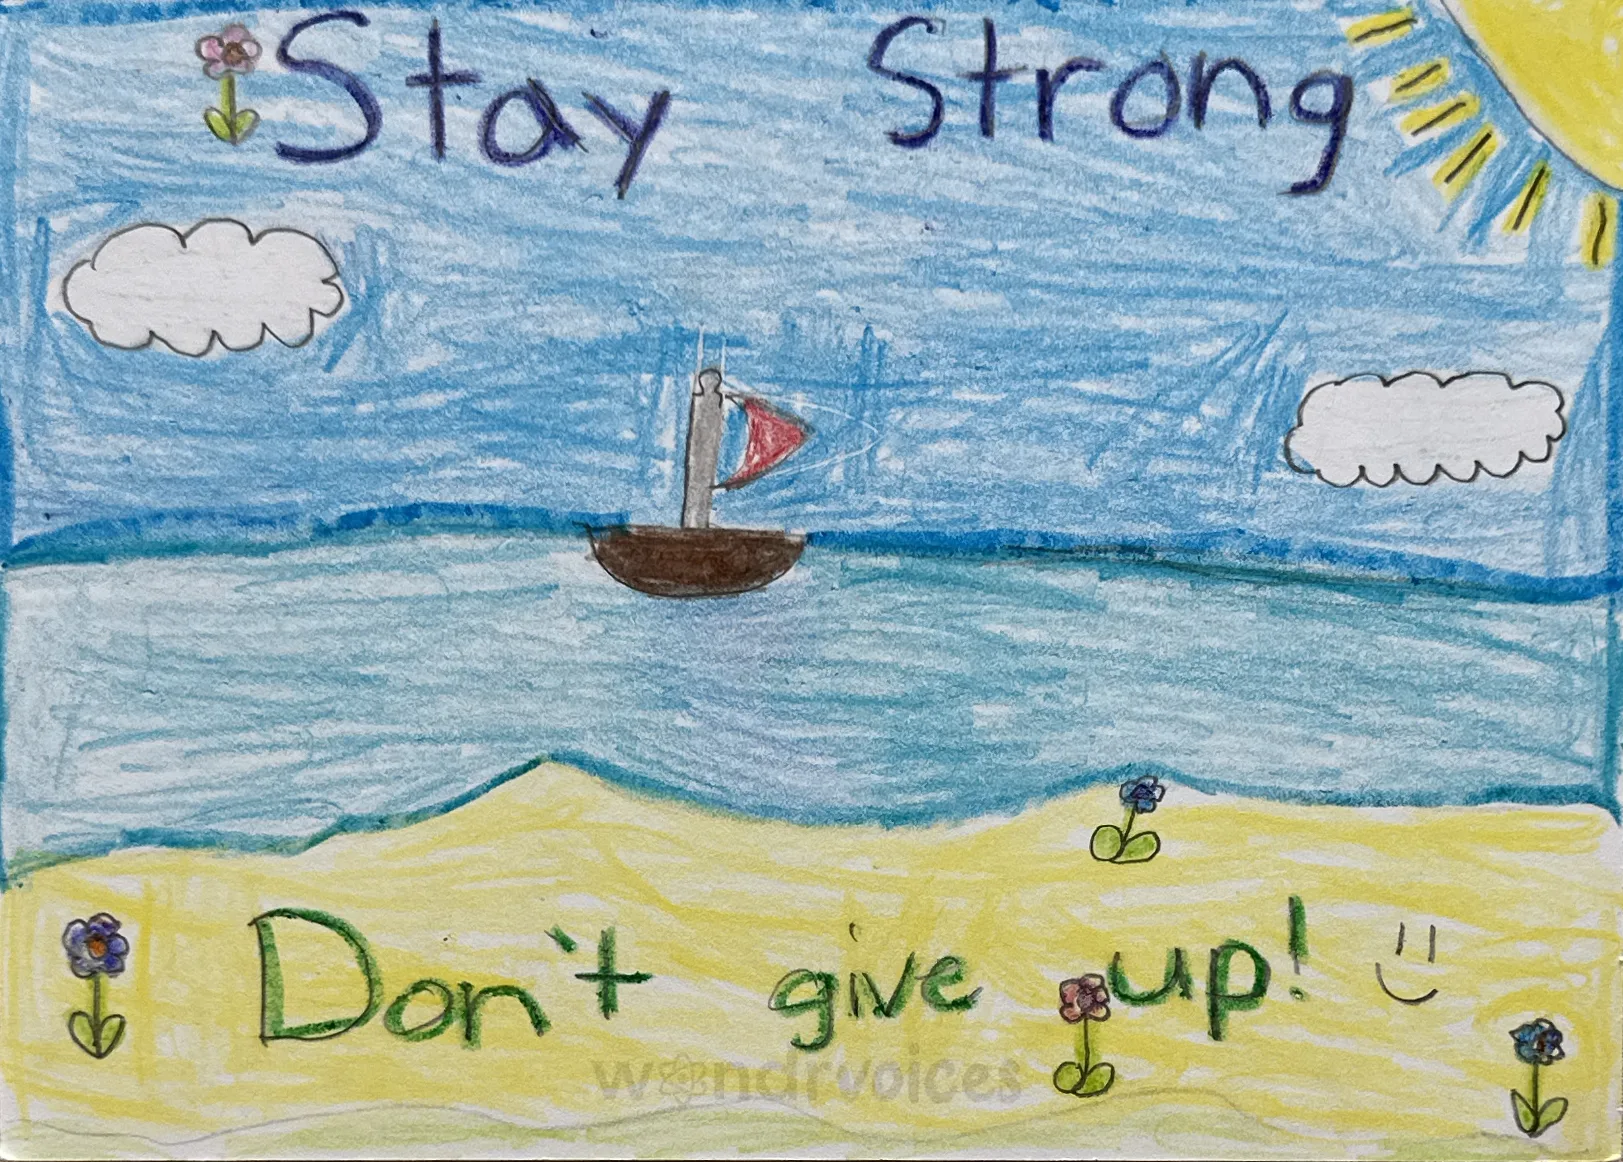 Stay Strong
Don't give up!
wondrvoices